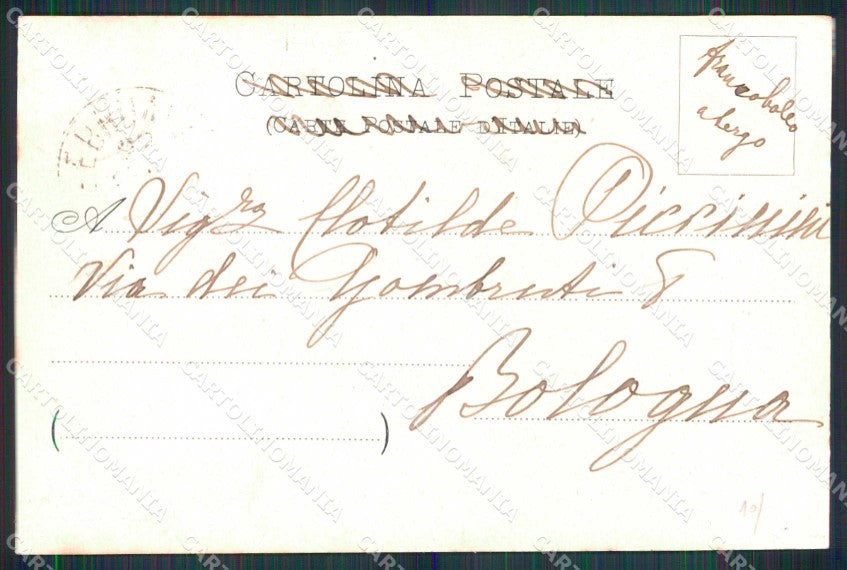 CARTOLINA POSTALE
(CARTE POSTALE D'ITALIE)
francobollo
a tergo
A Sig.ra Clotilde Piccinini
Via dei Gombruti 8
Bologna
10/
CARTOLINOMANIA